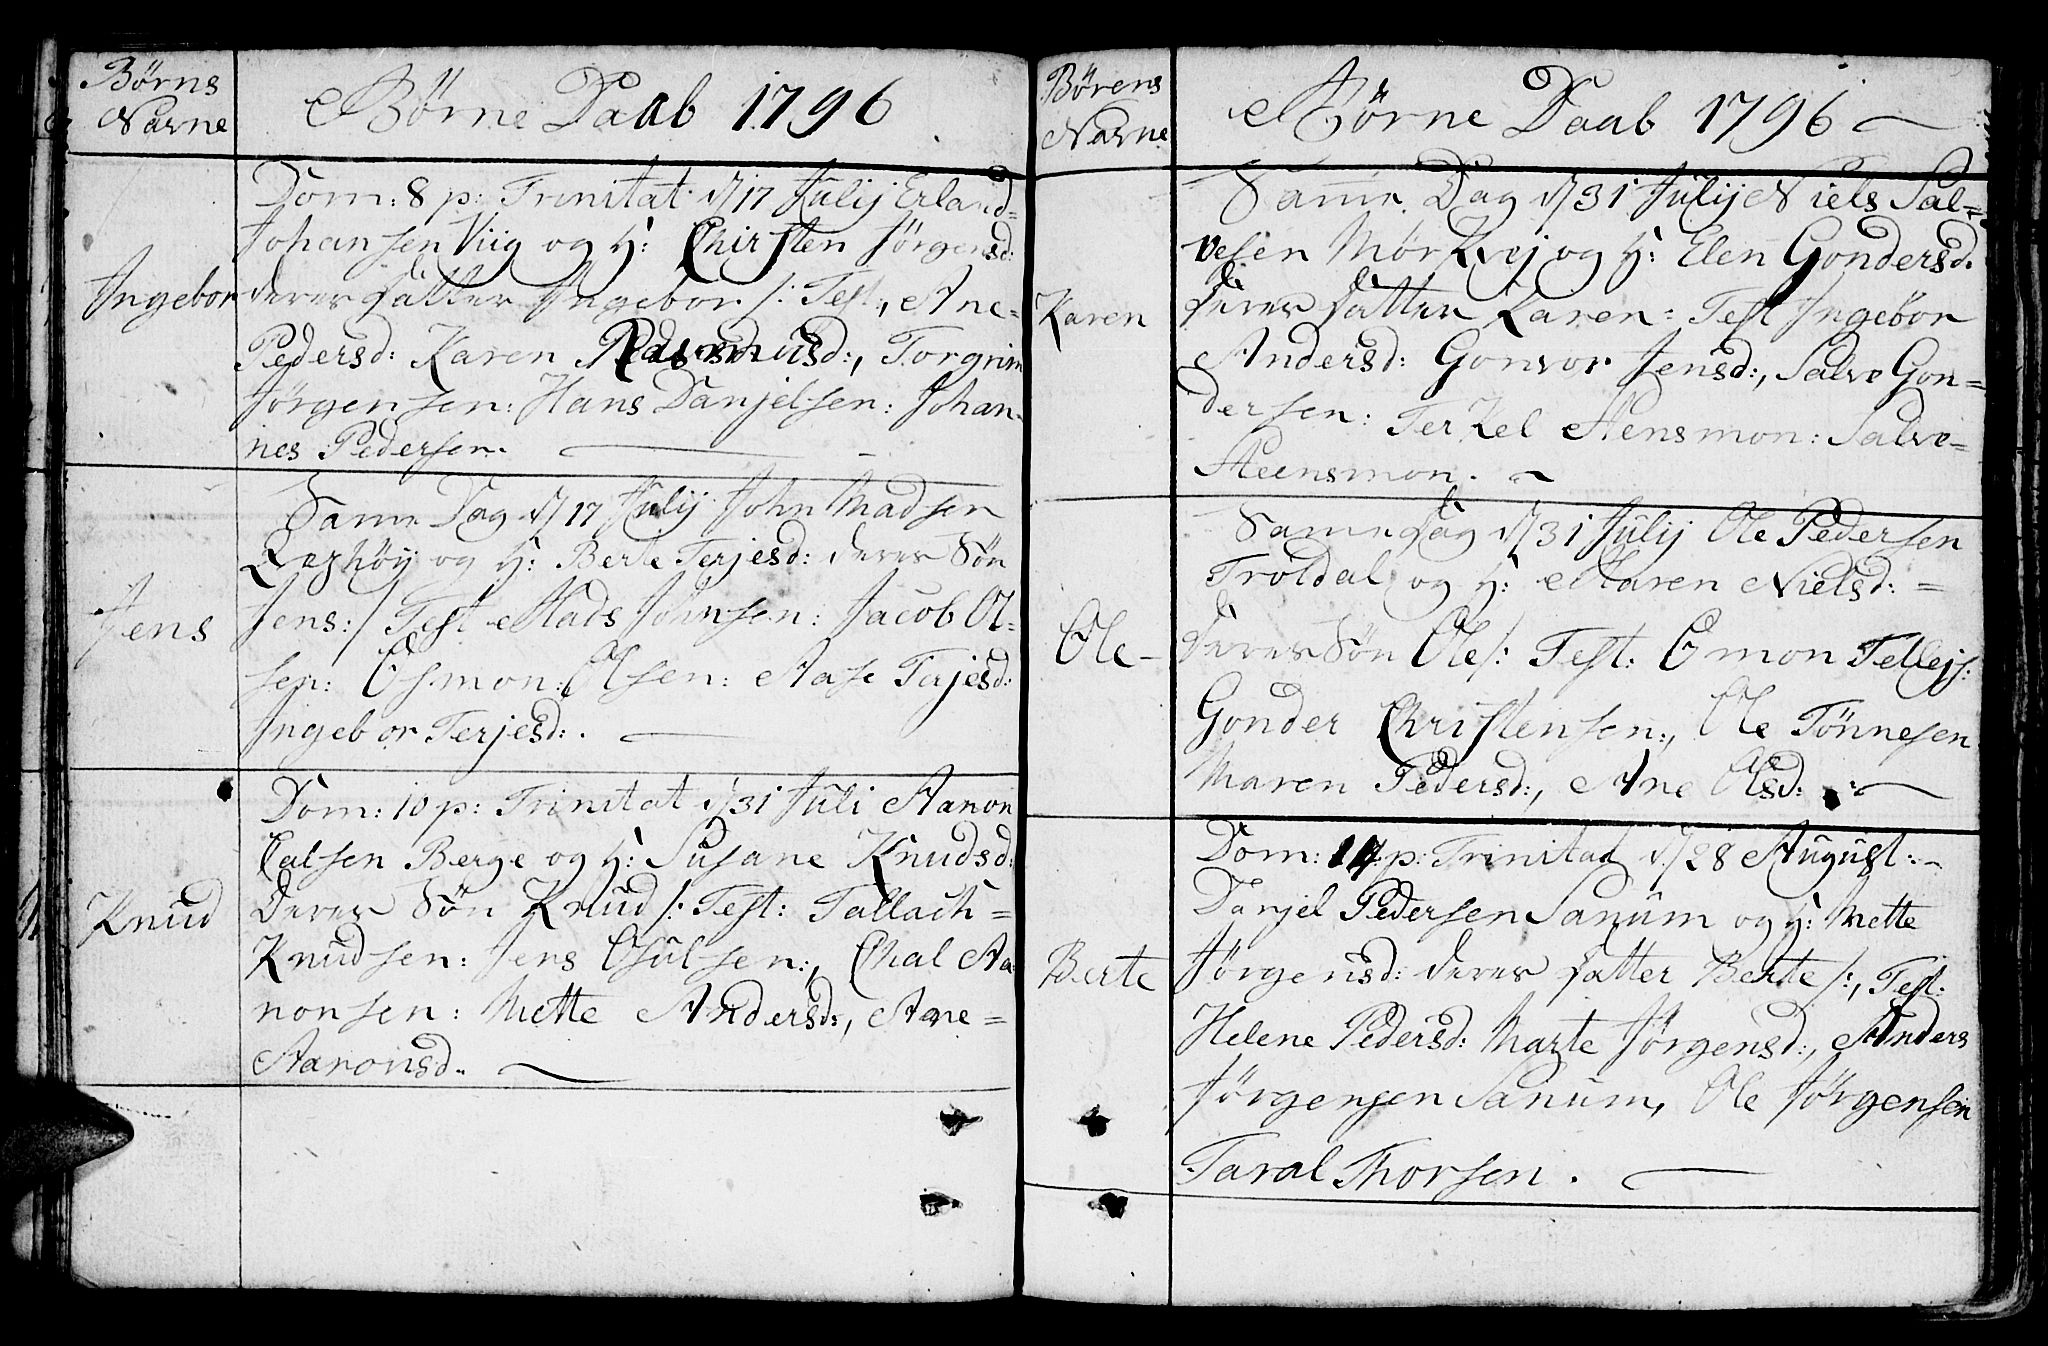 Børns
Navne
Børne Daab 1796
Dom: 8 p: Trinitat d/17 Julij Erland=
Johansen Viig og H: Chirsten Jørgensd:
Ingebor
deres datter Ingebor /: Test:, Ane=
Pedersd: Karen Rasmusd:, Torgrim
Jørgensen: Hans Danjelsen: Johan-
nes Pedersen.
Samme Dag d/17 Julij John Madsen
og H: Berte Terjesd: deres Søn
Jens
Jens: / Test Mads Johnsen: Jacob Ol-
sen: Osmon: Olsen: Aase Terjesd:
Ingebor Terjesd:.
Dom: 10 p: Trinitat d/31 Juli Aanon
Calsen Berge og H: Susane Knudsd:
Knud
deres Søn Knud /: Test: Tallach=
Knudsen: Jens Osulsen:, Chal Aa-
nonsen: Mette Andersd:, Ane=
Aanonsd..
Børens
Navne
Børne Daab 1796
Samme Dag d/31 Julij Niels Sal=
vesen Mørkvej og H: Elen Gondersd.
Karen
deres datter Karen: Test Ingebor
Andersd: Gonvor Jensd:, Salve Gon=
dersen: Terkel Stensmon: Salve=
Steensmon.
Samme dag d/31 Julij Ole Pedersen
Troldal og H: Maren Nielsd: =
Ole-
deres Søn Ole /: Test: Omon Tellejs:
Gonder Christensen:, Ole Tønnesen
Maren Pedersd:, Ane Olsd:
Dom: 14 p: Trinitat d/28 August:-
Danjel Pedersen Sanum og H: Mette
Berte
Jørgensd: deres datter Berte /:, Test:
Helene Pedersd: Marte Jørgensd:, Anders
Jørgensen Sanum, Ole Jørgensen
Taral Thorsen.